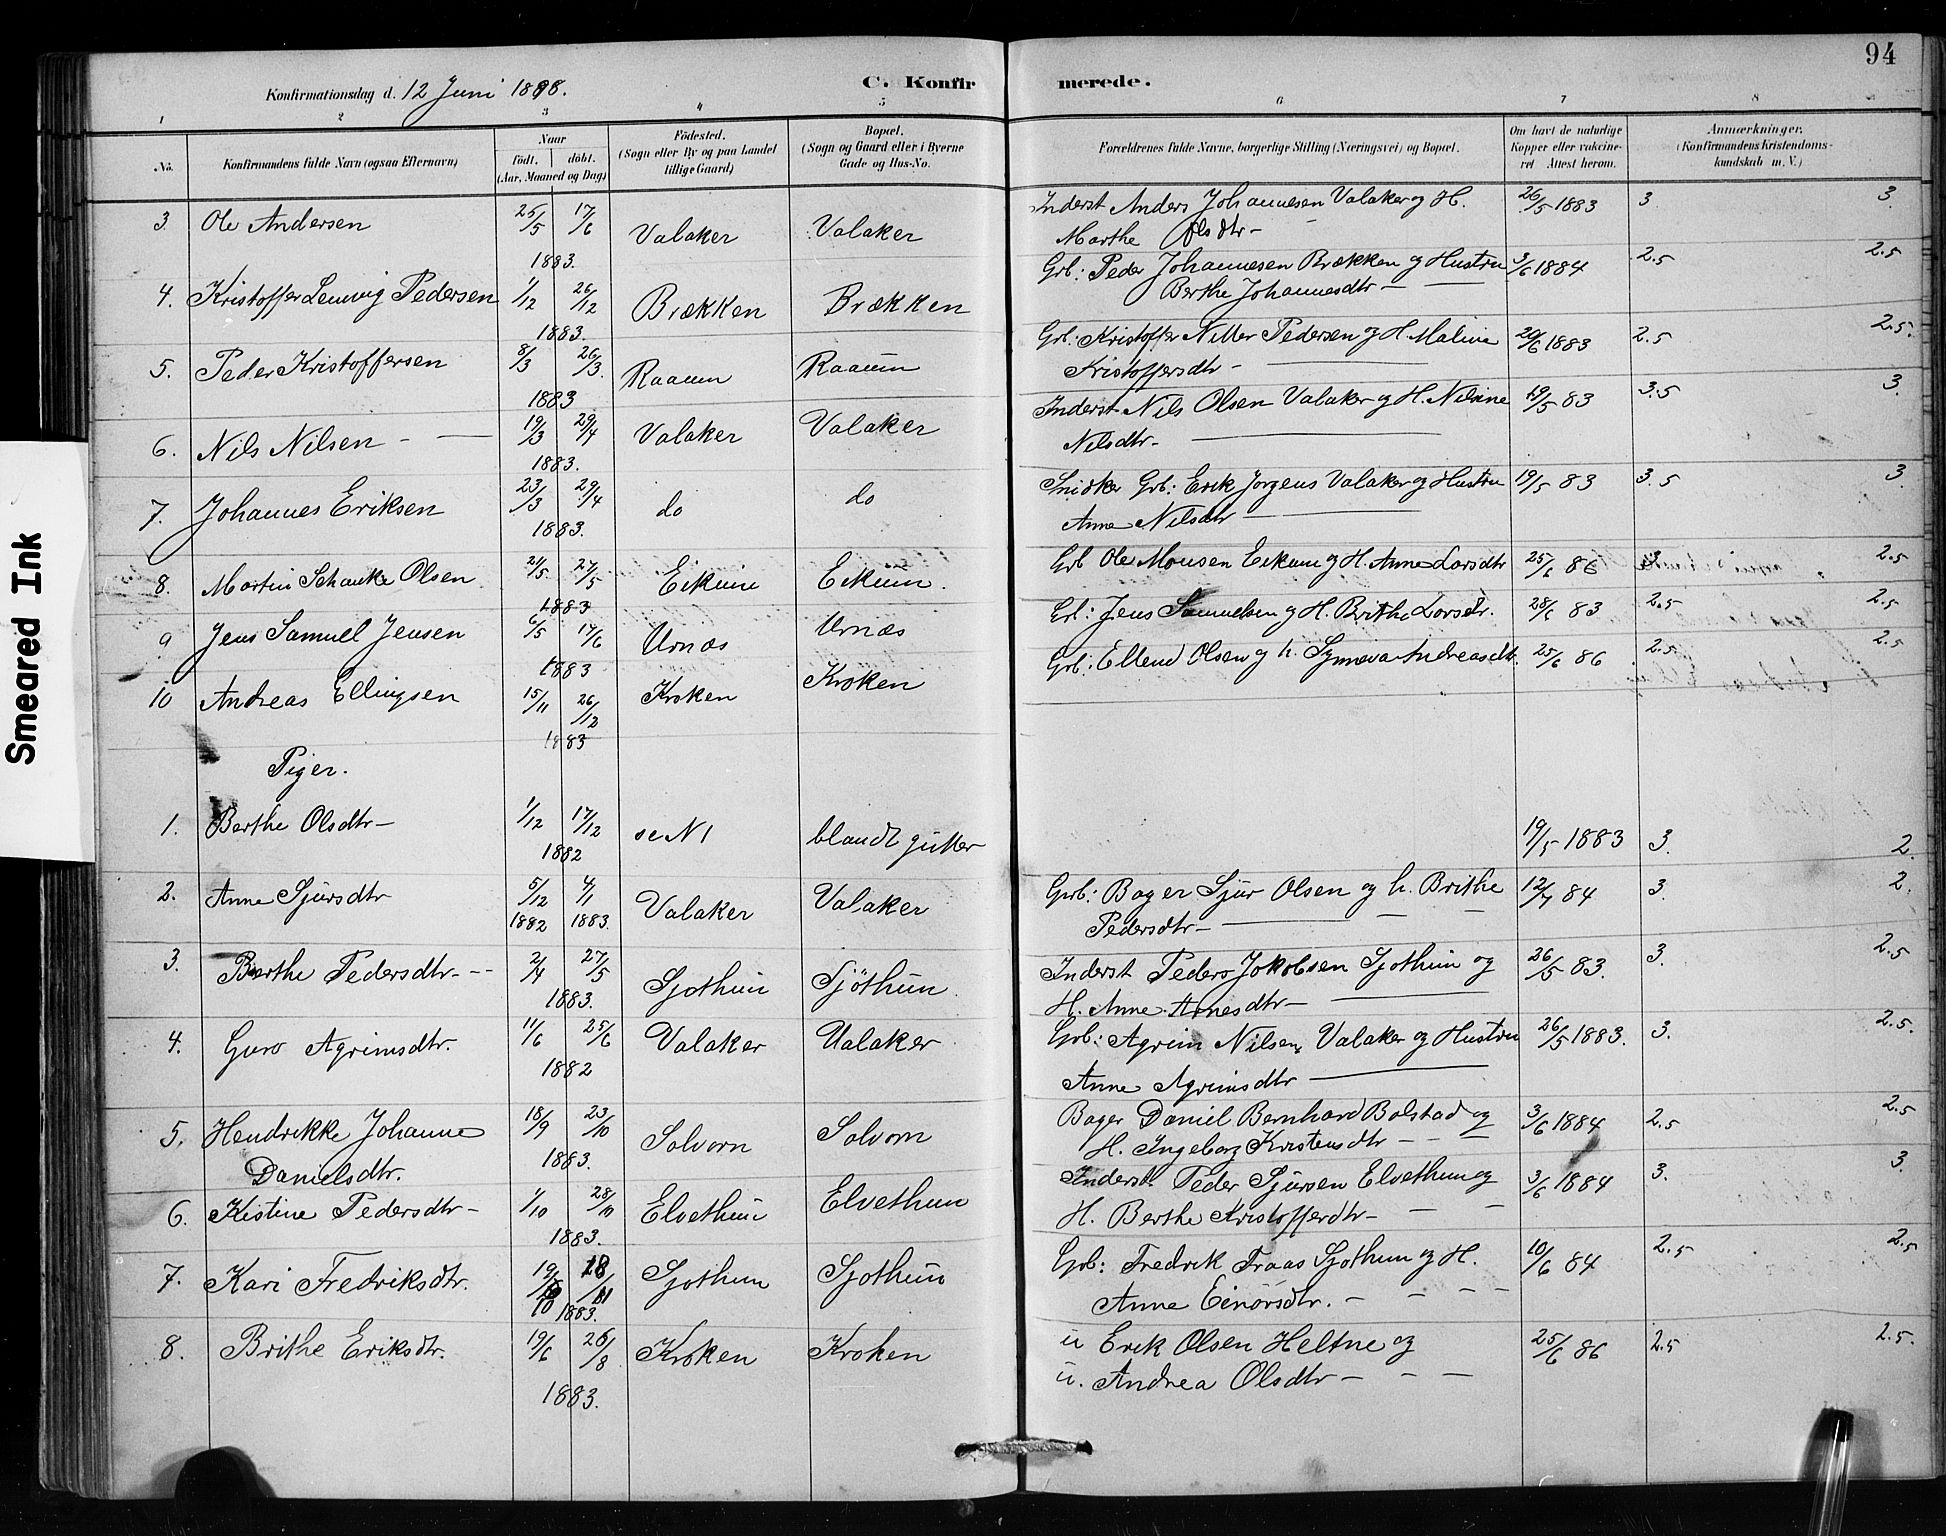 94
Konfirmationsdag d. 12 Juni 1898.
C. Konfirmerede.
1 2 3 4 5 6 7 8
No.
Konfirmandens fulde Navn (ogsaa Efternavn)
Naar
födt. döbt.
(Aar, Maaned og Dag)
Födested.
(Sogn eller By og paa Landet
tillige Gaard)
Bopæl.
(Sogn og Gaard eller i Byerne
Gade og Hus-No.
Forældrenes fulde Navne, borgerlige Stilling (Næringsvei) og Bopæl.
Om havt de naturlige
Kopper eller vakcine-
ret Attest herom.
Anmærkninger.
(Konfirmandens Kristendoms-
kundskab m. V.)
3. Ole Andersen 25/5 17/6 1883. Valaker Valaker Inderst Anders Johannesen Valaker og H. 26/5 1883 3 3.
Marthe Olsdtr -
4. Kristoffer Lenvig Pedersen 1/12 26/12 1883. Brækken Brækken Grb: Peder Johannesen Brækken og Hustru 3/6 1884 2.5 2.5
Berthe Johannesdtr -
5. Peder Kristoffersen 8/3 26/3. 1883 Raaum Raaum Grb: Kristoffer Nitter Pedersen og H. Maline 20/6 1883 2.5 2.5.
Kristoffersdtr -
6. Nils Nilsen - 19/3 29/4 1883. Valaker Valaker Inderst Nils Olsen Valaker og H. Nilsine 19/5 83 3.5 3.
Nilsdtr -
7. Johannes Eriksen 23/3 29/4 1883. do do Snidker Grb: Erik Jørgens Valaker og Hustru 19/5 83 3.5 3
Anne Nilsdtr
8. Martin Schanke Olsen 21/5. 27/5 1883 Eikum Eikum. Grb Ole Monsen Eikum og H. Anne Larsdtr 25/6 86 3. 2.5
9 Jens Samuel Jensen 6/5 17/6 1883 Urnæs Urnæs Grb: Jens Samuelsen og H. Brithe Larsdtr. 28/6 83 2.5 2.5
10 Andreas Ellingsen 15/11 26/12 1883 Kroken Kroken Grb: Ellend Olsen og h. Synneva Andreasdtr. 25/6 86 2.5 2.5
Piger.
1. Berthe Olsdtr - 1/12 17/12 1882 se N 1 blandt gutter 19/5 1883 3. 2.
2. Anne Sjursdtr 5/12 1882 4/1 1883. Valaker Valaker Grb: Bager Sjur Olsen og h. Brithe 12/7 84 3. 2.
Pedersdtr -
3. Berthe Pedersdtr - - 2/4 27/5 1883. Sjøthun Sjöthun. Inderst Peders Jakobsen Sjøthun og 26/5 83. 3. 2.5
H. Anne Arnesdtr -
4. Guro Agrimsdtr. 11/6 25/6 1882 Valaker Valaker Grb: Agrim Nilsen, Valaker og Hustru 26/5 1883. 3. 2.5.
Anne Agrimsdtr
5. Hendrikke Johanne 18/9 23/10 1883. Solvorn Solvorn Bager Daniel Bernhard Bolstad og 3/6 1884 2.5 2.5
Danielsdtr. H. Ingeborg Kristensdtr - -
6. Kistine Pedersdtr - 1/10 28/10 1883. Elvethun Elvethun Inderst. Peder Sjursen Elvethun og 3/6 1884 3. 3.
H. Berthe Kristofferdtr - - -
7. Kari Fredriksdtr. 19/10 18/11 1883. Sjøthun Sjøthun Grb: Fredrik Fraas Sjøthun og H. 10/6 84 2.5 2.5
Anne Einorsdtr. - - - -
8. Brithe Eriksdtr. 19/6 26/8 1883. Kroken Kroken u Erik Olsen Heltne og 25/6 86 2.5 2.5.
u. Andrea Olsdtr - - -
Smeared Ink